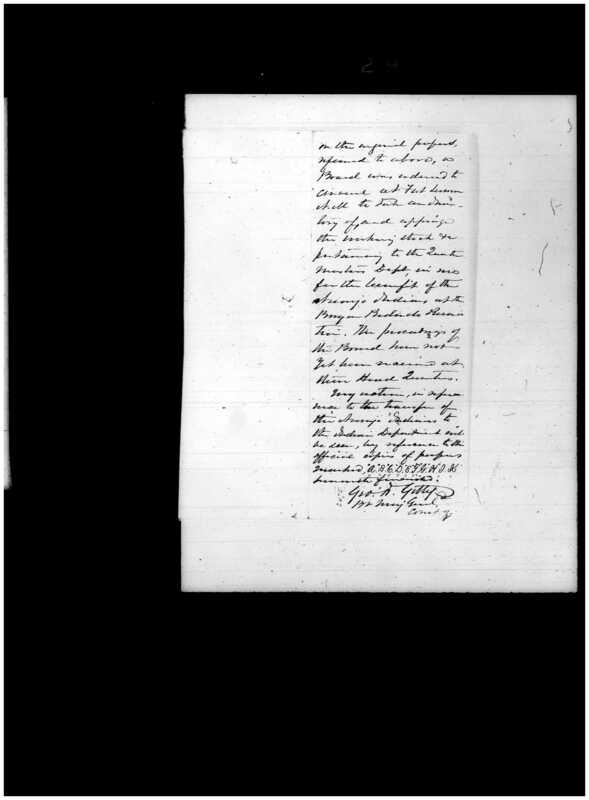 on the original papers,
referred to above, a
Board was ordered to
convene at Fort Sumner
N.M. to take an Inven-
tory of, and appraise
the working stock &c
pertaining to the Quarter
Masters Dept, in use
for the benefit of the
Navajo Indians at the
Bosque Redondo Reserva
tion. The proceedings of
the Board have not
yet been received at
these Head Quarters.
My action, in refer
ence to the transfer of
the Navajo Indians to
the Indian Department will
be seen, by reference to the
official copies of papers
marked, A. B. C. D. E. F. G. H. I. K
herewith
Geo. W. Getty
Bt Maj Genl
Comd'g